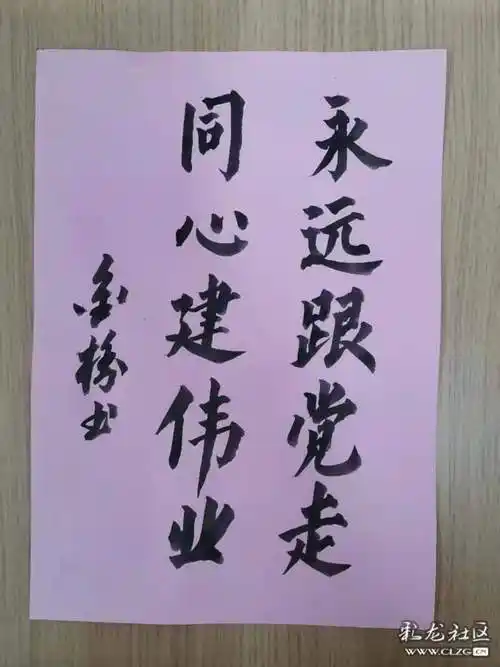 永远跟党走
同心建伟业
金榜书
彩龙社区
WWW.CLZG.CN